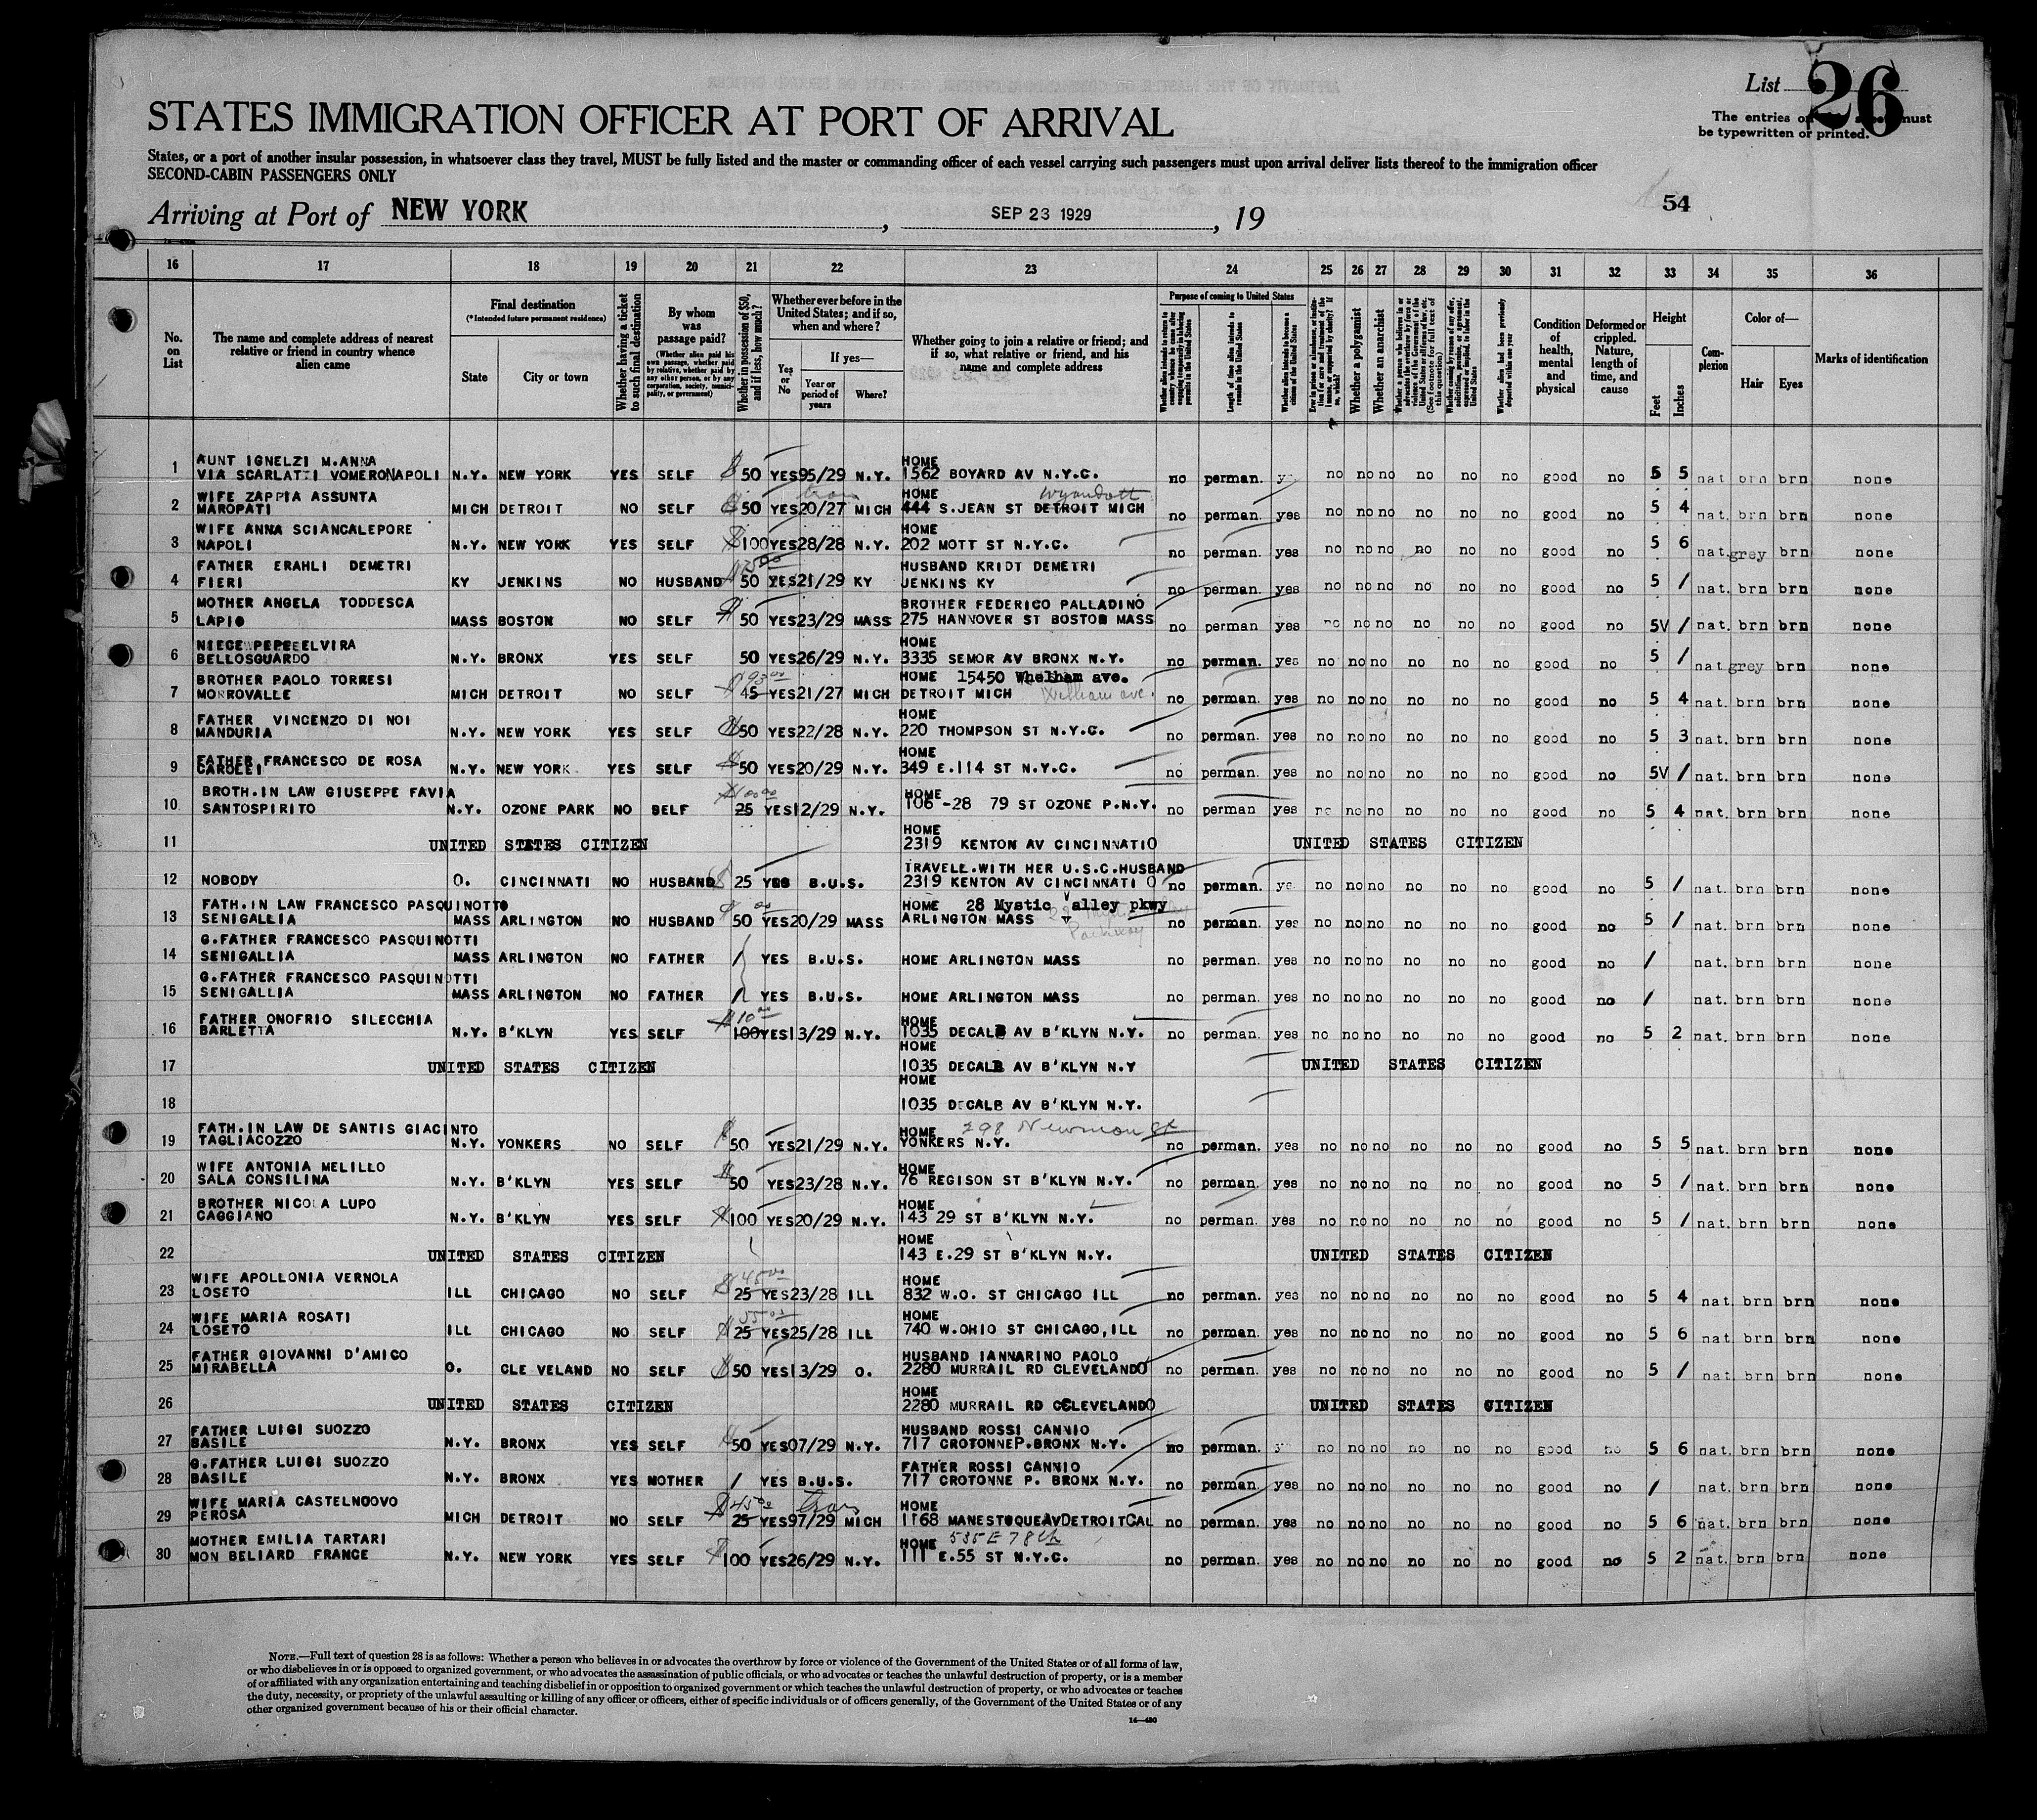 List 26
The entries on must
be typewritten or printed.
STATES IMMIGRATION OFFICER AT PORT OF ARRIVAL
States, or a port of another insular possession, in whatsoever class they travel, MUST be fully listed and the master or commanding officer of each vessel carrying such passengers must upon arrival deliver lists thereof to the immigration officer
SECOND-CABIN PASSENGERS ONLY
54
Arriving at Port of NEW YORK, SEP 23 1929, 19
16 17 18 19 20 21 22 23 24 25 26 27 28 29 30 31 32 33 34 35 36
No. on List
The name and complete address of nearest relative or friend in country whence alien came
Final destination
(*Intended future permanent residence)
State
City or town
Whether having a ticket to such final destination
By whom was passage paid?
(Whether alien paid his own passage, whether paid by relative, whether paid by any other person, or by any corporation, society, municipality, or government)
Whether in possession of $50, and if less, how much?
Whether ever before in the United States; and if so, when and where?
Yes or No
If yes—
Year or period of years
Where?
Whether going to join a relative or friend; and if so, what relative or friend, and his name and complete address
Purpose of coming to United States
Whether alien intends to return to country whence he came after engaging temporarily in laboring pursuits in the United States
Length of time alien intends to remain in the United States
Whether alien intends to become a citizen of the United States
Whether a polygamist
Whether an anarchist
Condition of health, mental and physical
Deformed or crippled. Nature, length of time, and cause
Height
Feet
Inches
Complexion
Color of—
Hair
Eyes
Marks of identification
1 AUNT IGNELZI M.ANNA
VIA SCARLATTI VOMERONAPOLI N.Y. NEW YORK YES SELF $ 50 YES 95/29 N.Y. HOME 1562 BOYARD AV N.Y.C. no perman. no no no no no no good no 5 5 nat brn brn none
2 WIFE ZAPPIA ASSUNTA
MAROPATI MICH DETROIT NO SELF $ 50 YES 20/27 MICH HOME 444 S.JEAN ST DETROIT MICH Wyandott no perman. yes no no no no no no good no 5 4 nat. brn brn none
3 WIFE ANNA SCIANCALEPORE
NAPOLI N.Y. NEW YORK YES SELF $ 100 YES 28/28 N.Y. HOME 202 MOTT ST N.Y.C. no perman. yes no no no no no no good no 5 6 nat. grey brn none
4 FATHER ERAHLI DEMETRI
FIERI KY JENKINS NO HUSBAND 50 YES 21/29 KY HUSBAND KRIDT DEMETRI JENKINS KY no perman. yes no no no no no no good no 5 / nat. brn brn none
5 MOTHER ANGELA TODDESCA
LAPIO MASS BOSTON NO SELF $ 50 YES 23/29 MASS BROTHER FEDERICO PALLADINO 275 HANNOVER ST BOSTON MASS no perman yes no no no no no no good no 5V / nat. brn brn none
6 NIECE PEPE ELVIRA
BELLOSGUARDO N.Y. BRONX YES SELF 50 YES 26/29 N.Y. HOME 3335 SEMOR AV BRONX N.Y. no perman. yes no no no no no no good no 5 / nat grey brn none
7 BROTHER PAOLO TORRESI
MORROVALLE MICH DETROIT NO SELF $93.00 45 YES 21/27 MICH HOME 15450 Whelham ave. DETROIT MICH no perman. yes no no no no no no good no 5 4 nat. brn brn none
8 FATHER VINCENZO DI NOI
MANDURIA N.Y. NEW YORK YES SELF $50 YES 22/28 N.Y. HOME 220 THOMPSON ST N.Y.C. no perman. yes no no no no no no good no 5 3 nat. brn brn none
9 FATHER FRANCESCO DE ROSA
CAROLEI N.Y. NEW YORK. YES SELF $50 YES 20/29 N.Y. HOME 349 E.114 ST N.Y.C. no perman. yes no no no no no no good no 5V / nat. brn brn none
10 BROTH.IN LAW GIUSEPPE FAVIA
SANTOSPIRITO N.Y. OZONE PARK NO BELF $100.00 25 YES 12/29 N.Y. HOME 106-28 79 ST OZONE P.N.Y. no perman yes no no no no no no good no 5 4 nat. brn brn none
11 UNITED STATES CITIZEN HOME 2319 KENTON AV CINCINNATIO UNITED STATES CITIZEN
12 NOBODY O. CINCINNATI NO HUSBAND $ 25 YES B.U.S. TRAVELL.WITH HER U.S.C.HUSBAND 2319 KENTON AV CINCINNATI O no perman. no no no no no no good no 5 / nat. brn brn none
13 FATH.IN LAW FRANCESCO PASQUINOTTO
SENIGALLIA MASS ARLINGTON NO HUSBAND 50 YES 20/29 MASS HOME 28 Mystic Valley pkwy ARLINGTON MASS no perman. yes no no no no no no good no 5 / nat. brn brn none
14 G.FATHER FRANCESCO PASQUINOTTI
SENIGALLIA MASS ARLINGTON NO FATHER / YES B.U.S. HOME ARLINGTON MASS no perman. yes no no no no no no good no / nat. brn brn none
15 G.FATHER FRANCESCO PASQUINOTTI
SENIGALLIA MASS ARLINGTON NO FATHER / YES B.U.S. HOME ARLINGTON MASS no perman. yes no no no no no no good no / nat. brn brn none
16 FATHER ONOFRIO SILECCHIA
BARLETTA N.Y. B'KLYN YES SELF 100 YES 13/29 N.Y. HOME 1035 DECALB AV B'KLYN N.Y. no perman. yes no no no no no no good no 5 2 nat. brn brn none
17 UNITED STATES CITIZEN HOME 1035 DECALB AV B'KLYN N.Y UNITED STATES CITIZEN
18 HOME 1035 DECALB AV B'KLYN N.Y.
19 FATH.IN LAW DE SANTIS GIACINTO
TAGLIACOZZO N.Y. YONKERS NO SELF $50 YES 21/29 N.Y. HOME 298 Newmon st YONKERS N.Y. no perman. yes no no no no no no good no 5 5 nat. brn brn none
20 WIFE ANTONIA MELILLO
SALA CONSILINA N.Y. B'KLYN YES SELF $50 YES 23/28 N.Y. HOME 76 REGISON ST B'KLYN N.Y. no perman. yes no no no no no no good no 5 / nat. brn brn none
21 BROTHER NICOLA LUPO
CAGGIANO N.Y. B'KLYN YES SELF $100 YES 20/29 N.Y. HOME 143 29 ST B'KLYN N.Y. no perman. yes no no no no no no good no 5 / nat. brn brn none
22 UNITED STATES CITIZEN HOME 143 E.29 ST B'KLYN N.Y. UNITED STATES CITIZEN
23 WIFE APOLLONIA VERNOLA
LOSETO ILL CHICAGO NO SELF $45.00 25 YES 23/28 ILL HOME 832 W.O. ST CHICAGO ILL no perman. yes no no no no no no good no 5 4 nat. brn brn none
24 WIFE MARIA ROSATI
LOSETO ILL CHICAGO NO SELF $55.00 25 YES 25/28 ILL HOME 740 W.OHIO ST CHICAGO, ILL no perman. yes no no no no no no good no 5 6 nat. brn brn none
25 FATHER GIOVANNI D'AMICO
MIRABELLA O. CLE VELAND NO SELF $50 YES 13/29 O. HUSBAND IANNARINO PAOLO 2280 MURRAIL RD CLEVELANDO no perman. yes no no no no no no good no 5 / nat brn brn none
26 UNITED STATES CITIZEN HOME 2280 MURRAIL RD CCLEVELANDO UNITED STATES CITIZEN
27 FATHER LUIGI SUOZZO
BASILE N.Y. BRONX YES SELF 50 YES 07/29 N.Y. HUSBAND ROSSI CANNIO 717 CROTONNEP.BRONX N.Y. no perman. no no no no no no good no 5 6 nat. brn brn none
28 G.FATHER LUIGI SUOZZO
BASILE N.Y. BRONX YES MOTHER / YES B.U.S. FATHER ROSSI CANNIO 717 CROTONNE P. BRONX N.Y. no perman. yes no no no no no no good no / nat. brn brn none
29 WIFE MARIA CASTELNOOVO
PEROSA MICH DETROIT NO SELF $45.00 25 YES 97/29 MICH HOME 1168 MANESTOQUEAVDETROITCAL no perman. yes no no no no no no good no 5 6 nat. brn brn none
30 MOTHER EMILIA TARTARI
MON BELIARD FRANCE N.Y. NEW YORK YES SELF $100 YES 26/29 N.Y. HOME 535 E 78th 111 E.55 ST N.Y.C. no perman. yes no no no no no no good no 5 2 nat. brn brn none
NOTE.—Full text of question 28 is as follows: Whether a person who believes in or advocates the overthrow by force or violence of the Government of the United States or of all forms of law,
or who disbelieves in or is opposed to organized government, or who advocates the assassination of public officials, or who advocates or teaches the unlawful destruction of property, or is a member
of or affiliated with any organization entertaining and teaching disbelief in or opposition to organized government or which teaches the unlawful destruction of property, or who advocates or teaches
the duty, necessity, or propriety of the unlawful assaulting or killing of any officer or officers, either of specific individuals or of officers generally, of the Government of the United States or of any
other organized government because of his or their official character.
14—430